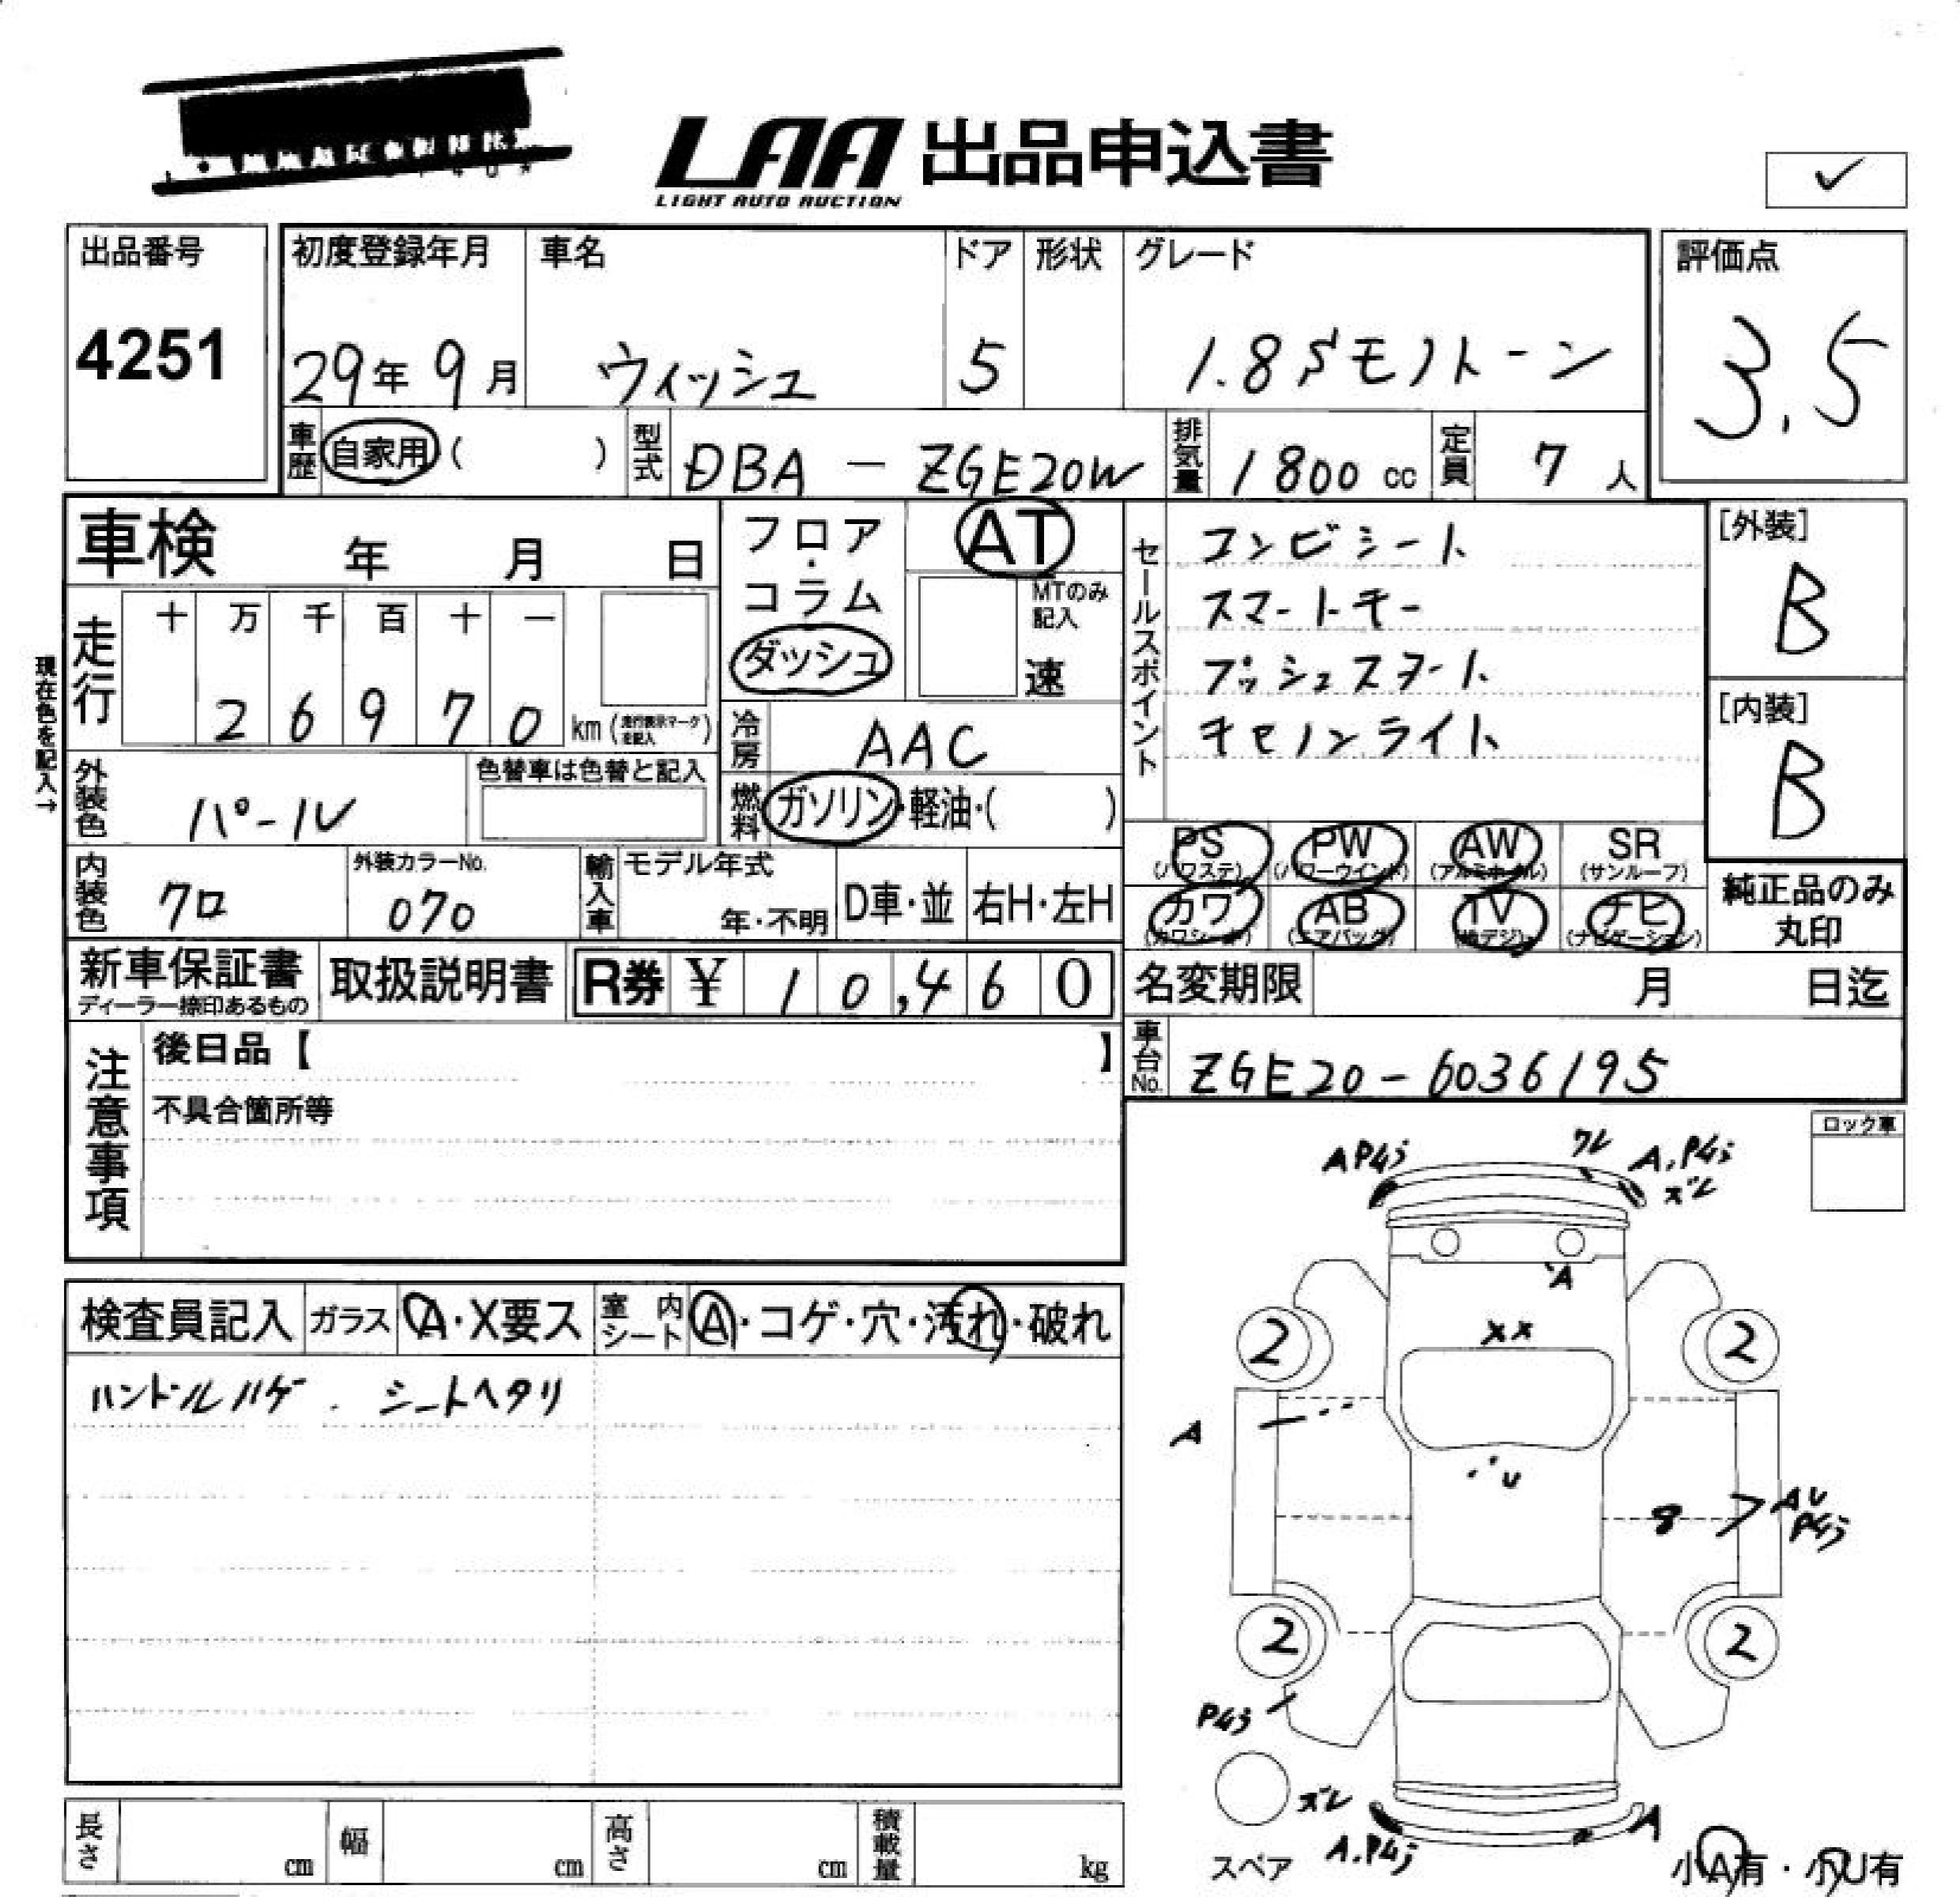 LAA 出品申込書
LIGHT AUTO AUCTION
✓
出品番号 初度登録年月 車名 ドア 形状 グレード 評価点
4251 29年 9月 ウィッシュ 5 1.8Sモノトーン 3.5
車歴 自家用 ( ) 型式 DBA - ZGE20W 排気量 1800 cc 定員 7 人
車検 年 月 日
フロア・コラム
ダッシュ
AT
MTのみ記入
速
セールスポイント
コンビシート
スマートキー
プッシュスタート
キセノンライト
[外装]
B
[内装]
B
現在色を記入→
走行 十 万 千 百 十 一
2 6 9 7 0 km (走行表示マークを記入)
冷房 AAC
外装色 パール 色替車は色替と記入
燃料 ガソリン・軽油・( )
PS (パワステ) PW (パワーウインド) AW (アルミホイル) SR (サンルーフ)
カワ (カワシート) AB (エアバッグ) TV (地デジ) ナビ (ナビゲーション)
純正品のみ
丸印
内装色 クロ 外装カラーNo. 070 輸入車 モデル年式 年・不明 D車・並 右H・左H
新車保証書 ディーラー捺印あるもの 取扱説明書 R券 ¥ 10,460
名変期限 月 日迄
車台No. ZGE20-6036195
注意事項
後日品【 】
不具合箇所等
ロック車
検査員記入 ガラス A・X要ス 室内シート A・コゲ・穴・汚れ・破れ
ハンドルハゲ. シートヘタリ
AP4j ワレ A,P4j
ズレ
A
XX
2 2
A
U
8 AU
P4j
2 2
P4j
ズレ
A.P4j A
スペア
小A有・小U有
長さ cm 幅 cm 高さ cm 積載量 kg